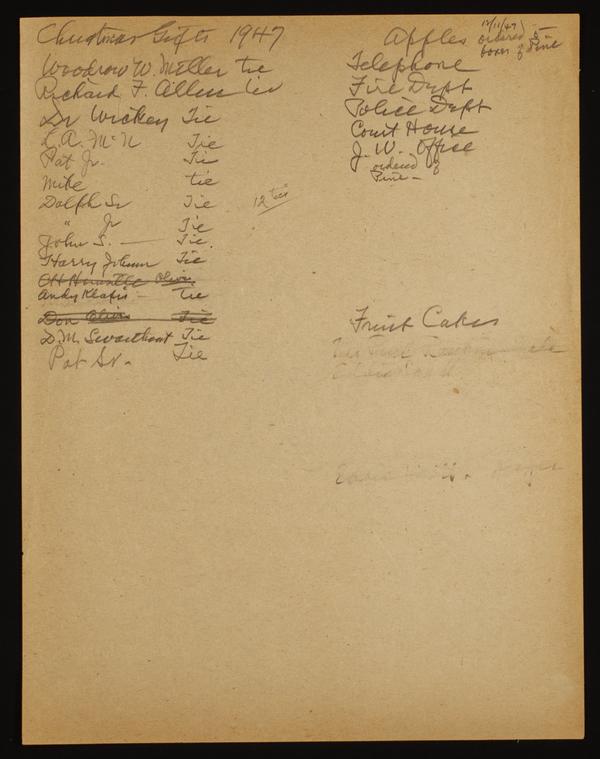 Christmas Gifts 1947
Woodrow W. Miller tie
Richard F. Allen tie
Dr Wickey Tie
L. A. McN Tie
Pat Jr. Tie
Mike tie
Dolph Sr Tie
12 ties
" Jr Tie
John S. — Tie.
Harry Johnson Tie
Andy Klafis — tie
Don Oliver Tie
D. M. Swarthout Tie
Pat Sr. Tie
Apples 12/11/47 ordered 5 —
boxes of Pine
Telephone
Fire Dept
Police Dept
Court House
J. W. Office
ordered of
Pine —
Fruit Cakes